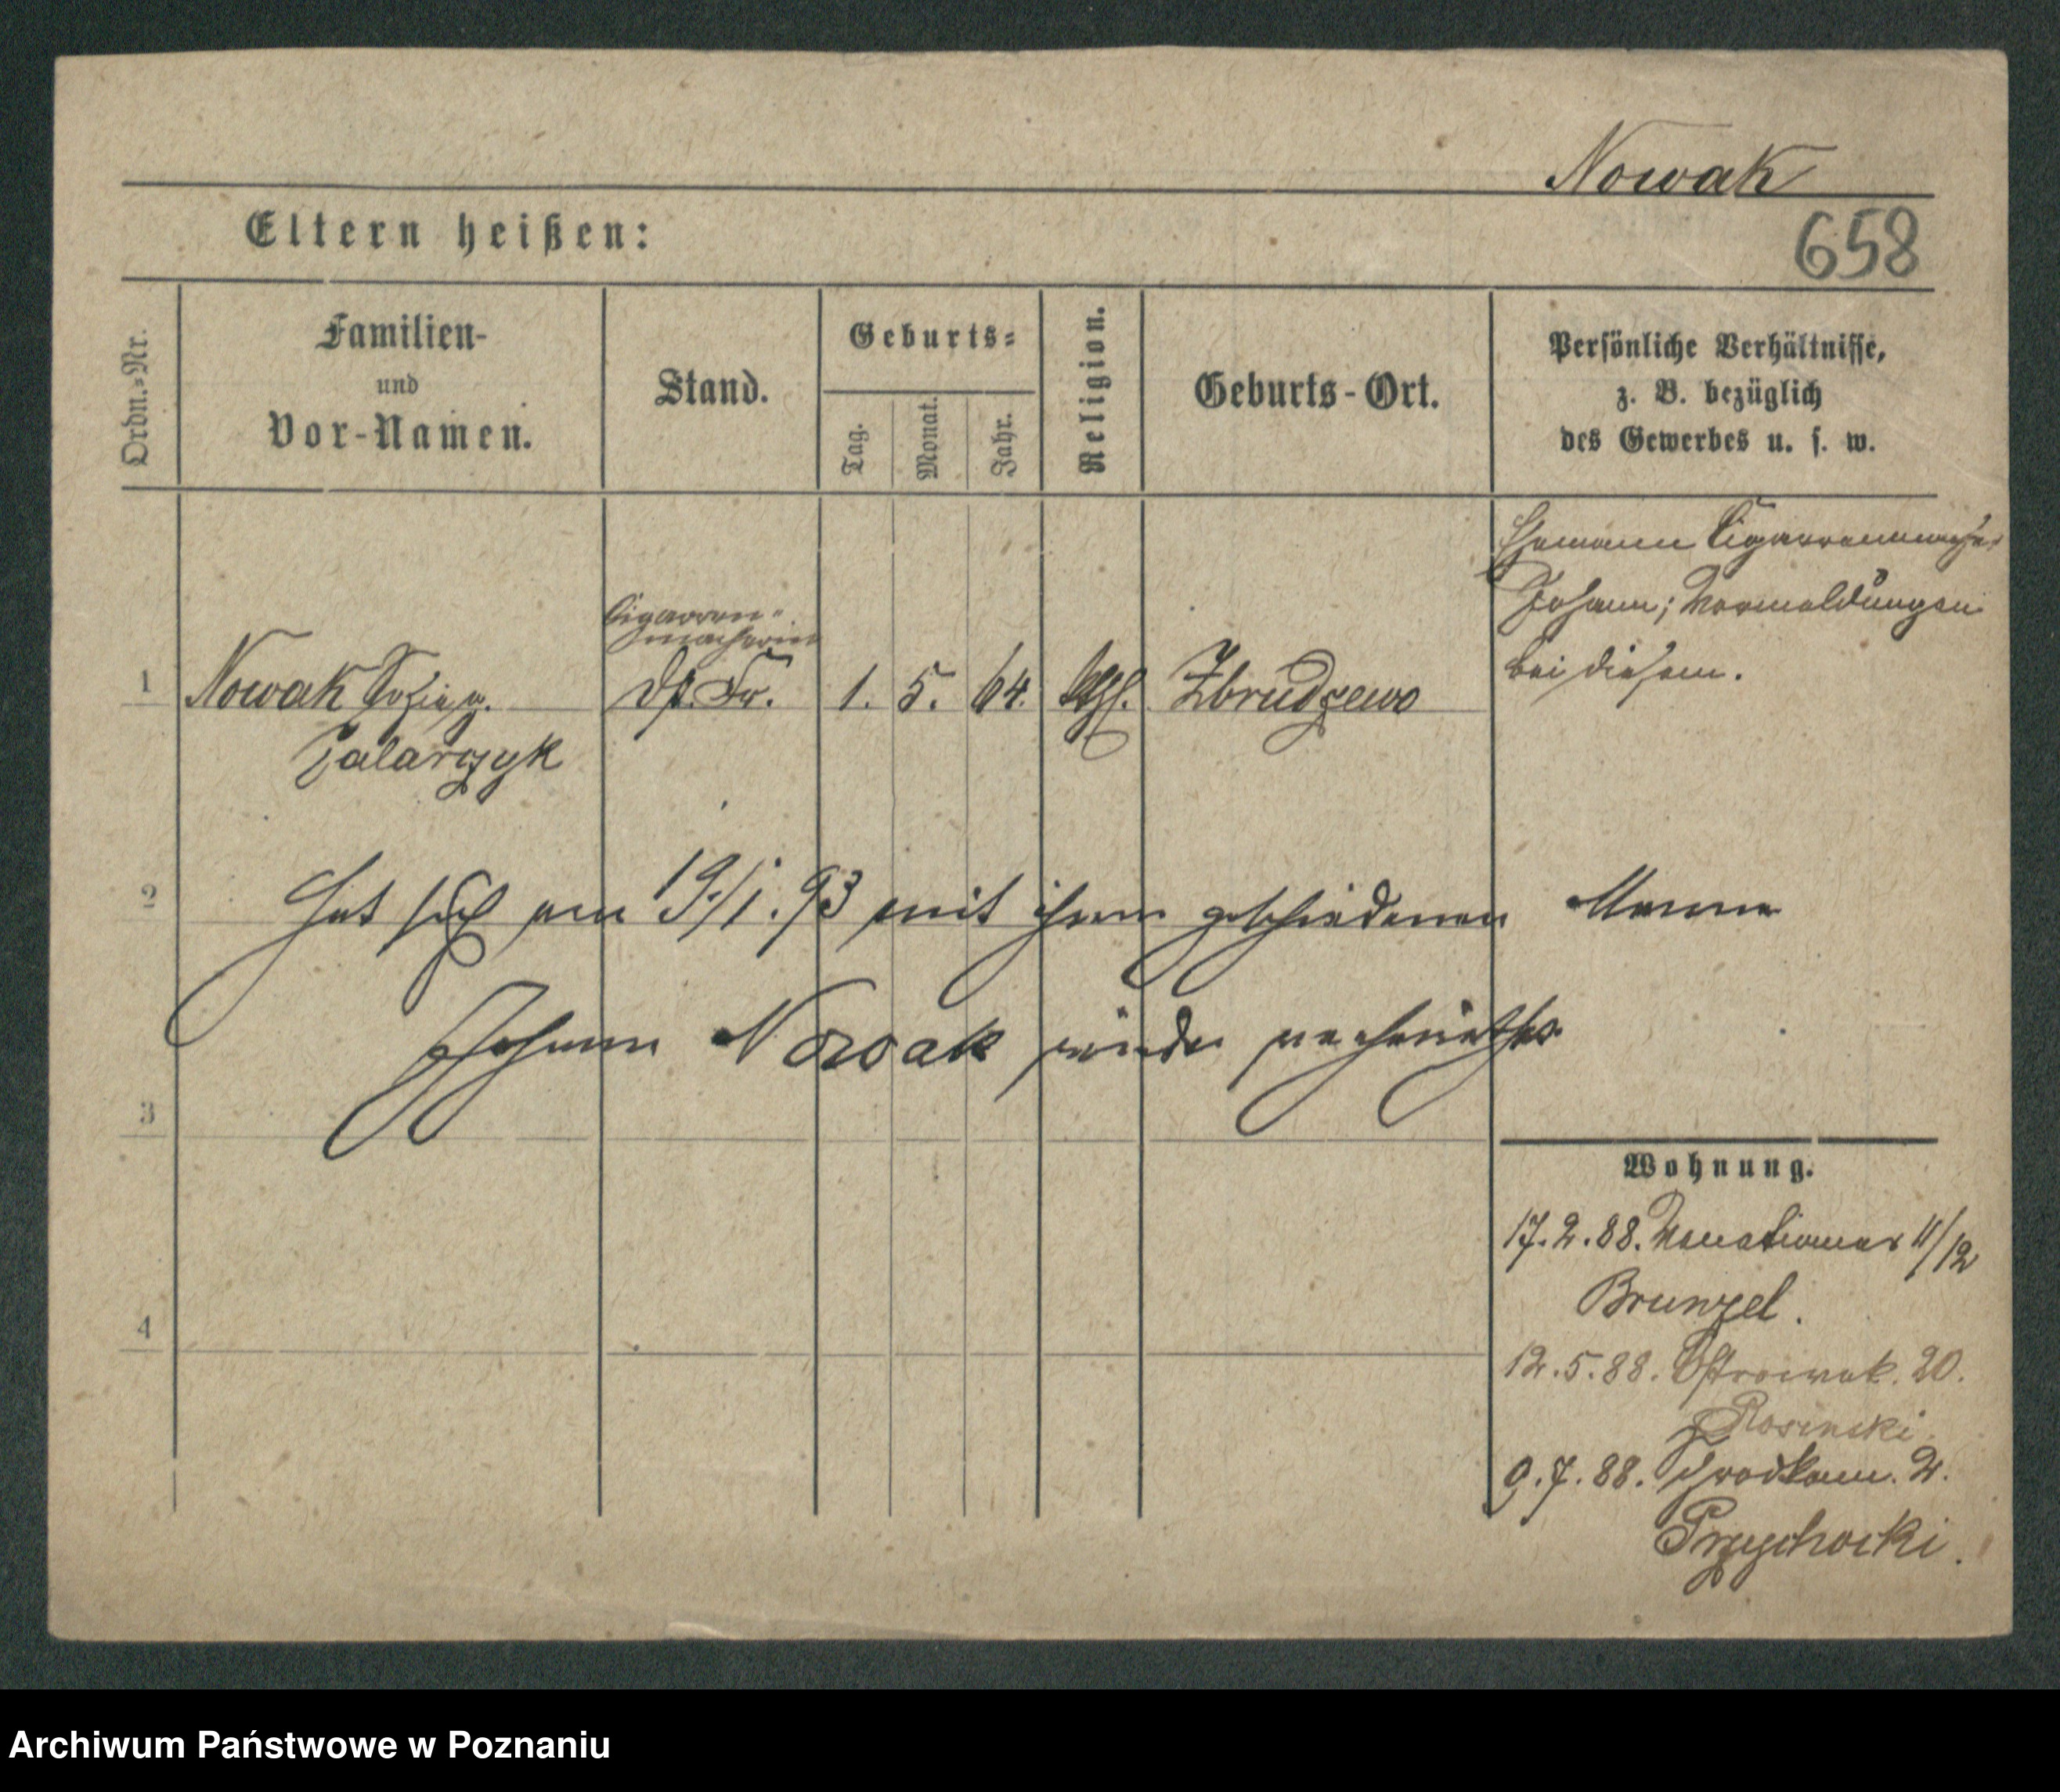 Nowak
Eltern heißen:
658
Ordn.=Nr.
Familien-
und
Vor-Namen.
Stand.
Geburts=
Tag.
Monat.
Jahr.
Religion.
Geburts-Ort.
Persönliche Verhältnisse,
z. B. bezüglich
des Gewerbes u. s. w.
Ehemann Cigarrenmacher
Johann; Vormeldungen
bei diesem.
Cigarren-
macherin
1 Nowak g. 1. 5. 64. kth. Zbrudzewo
Talarczyk
2 Hat sich am 19./1. 93 mit ihrem geschiedenen Manne
Johann Nowak wieder verheirathet
3
Wohnung.
17.2.88. Venetianer 11/12
Brunzel.
4
12.5.88. Ostrowek. 20.
Rosinski
9.7.88. Schrodkam. 2.
Przychocki.
Archiwum Państwowe w Poznaniu